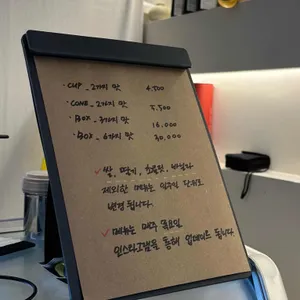 · CUP _ 2가지 맛 4,500
· CONE _ 2가지 맛 5,500
· BOX _ 3가지 맛 16,000
· BOX _ 6가지 맛 30,000
✓ 쌀, 딸기, 초콜릿,
제외한 메뉴는 일주일 단위로
변경 됩니다.
✓ 메뉴는 매주 목요일
인스타그램을 통해 업데이트 됩니다